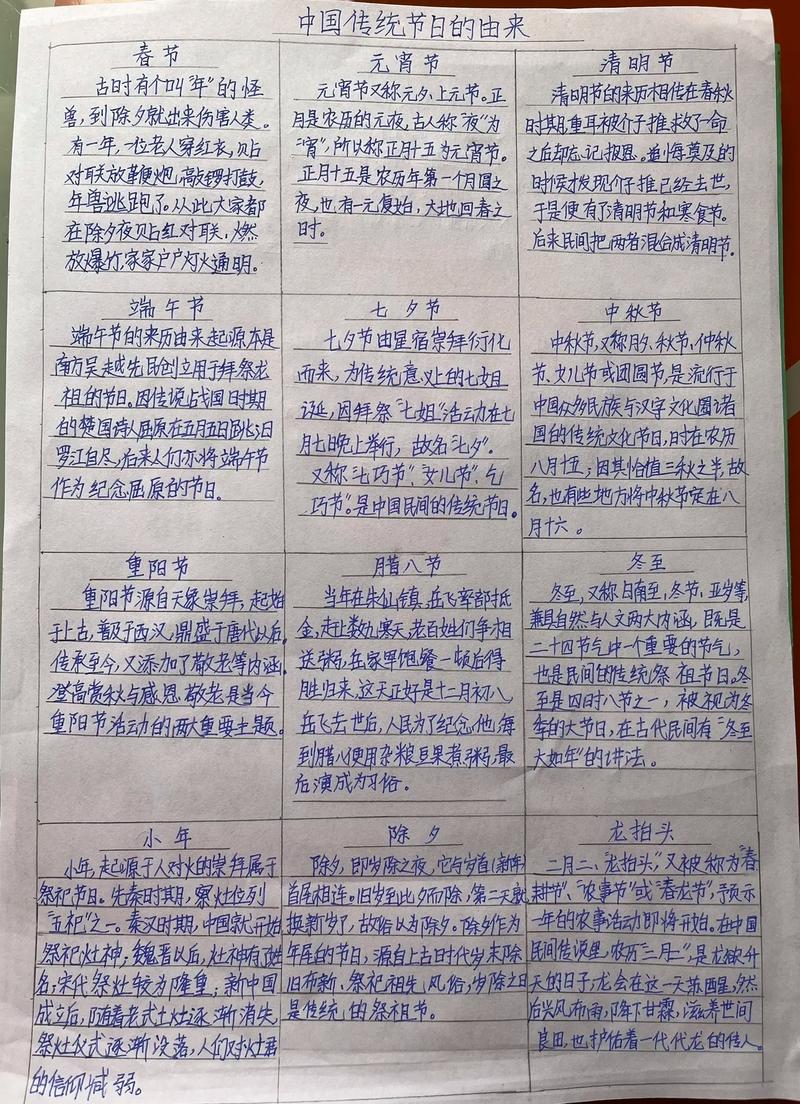 中国传统节日的由来
春节
古时有个叫"年"的怪
兽,到除夕就出来伤害人类。
有一年,一位老人穿红衣,贴
对联放鞭炮,敲锣打鼓,
年兽逃跑了。从此大家都
在除夕夜贴红对联,燃
放爆竹,家家户户灯火通明。
元宵节
元宵节又称元夕、上元节。正
月是农历的元夜,古人称"夜"为
"宵",所以称正月十五为元宵节。
正月十五是农历年第一个月圆之
夜,也有一元复始,大地回春之
时。
清明节
清明节的来历相传在春秋
时期,重耳被介子推救了一命
之后却忘记报恩。追悔莫及的
时候才发现介子推已经去世,
于是便有了清明节和寒食节。
后来民间把两者混合成清明节.
端午节
端午节的来历由来起源本是
南方吴越先民创立用于拜祭龙
祖的节日。因传说战国时期
的楚国诗人屈原在五月五日跳汨
罗江自尽,后来人们亦将端午节
作为纪念屈原的节日。
七夕节
七夕节由星宿崇拜衍化
而来,为传统意义上的七姐
诞,因拜祭"七姐"活动在七
月七晚上举行,故名"七夕"。
又称"七巧节"、"女儿节"、"乞
巧节"。是中国民间的传统节日。
中秋节
中秋节,又称月夕、秋节、仲秋
节、女儿节或团圆节,是流行于
中国众多民族与汉字文化圈诸
国的传统文化节日,时在农历
八月十五;因其恰值三秋之半,故
名,也有些地方将中秋节定在八
月十六。
重阳节
重阳节源自天象崇拜,起始
于上古,普及于西汉,鼎盛于唐代以后.
传承至今,又添加了敬老等内涵.
登高赏秋与感恩敬老是当今
重阳节活动的两大重要主题。
腊八节
当年在朱仙镇,岳飞率部抵
金,走上数九寒天,老百姓们争相
送粥,岳家军饱餐一顿后得
胜归来,这天正好是十二月初八,
岳飞去世后,人民为了纪念他,每
到腊八便用杂粮豆果煮粥,最
后演成为习俗。
冬至
冬至,又称日南至、冬节、亚岁等,
兼具自然与人文两大内涵,既是
二十四节气中一个重要的节气,
也是民间的传统祭祖节日。冬
至是四时八节之一,被视为冬
季的大节日,在古代民间有"冬至
大如年"的讲法。
小年
小年,起源于人对火的崇拜属于
祭祀节日。先秦时期,祭灶位列
"五祀"之一。秦汉时期,中国就开始
祭祀灶神;魏晋以后,灶神有了姓
名;宋代祭灶较为隆重;新中国
成立后,随着老式土灶逐渐消失,
祭灶仪式逐渐没落,人们对灶君
的信仰减弱。
除夕
除夕,即岁除之夜,它与岁首(新年)
首尾相连。旧岁至此夕而除,第二天就
换新岁了,故俗以为除夕。除夕作为
年尾的节日,源自上古时代岁末除
旧布新、祭祀祖先风俗;岁除之日
是传统的祭祖节。
龙抬头
二月二、"龙抬头",又被称为"春
耕节"、"农事节"或"春龙节",预示
一年的农事活动即将开始。在中国
民间传说里,农历"二月二"是龙欲升
天的日子,龙会在这一天苏醒,然
后兴风布雨,降下甘霖,滋养世间
良田,也护佑着一代代龙的传人。